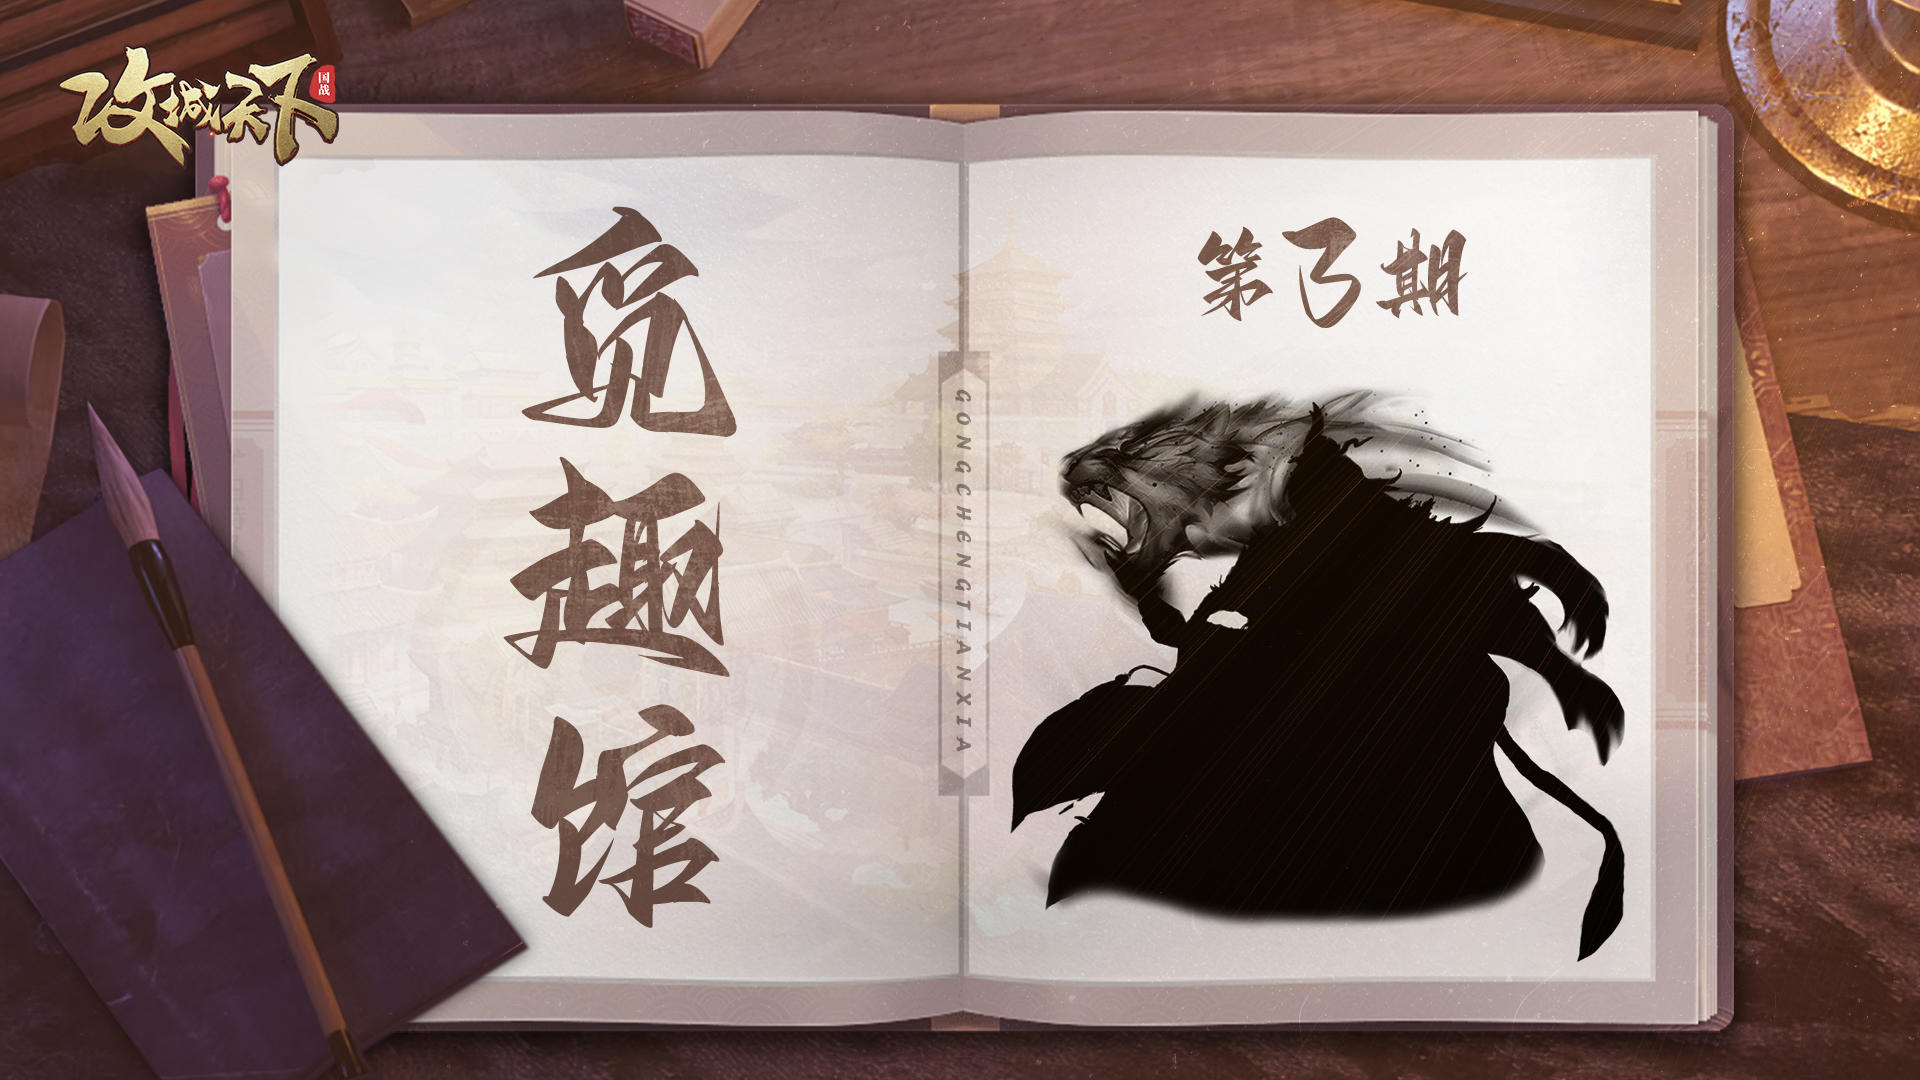 攻城天下
国战
觅趣馆
第3期
GONGCHENGTIANXIA